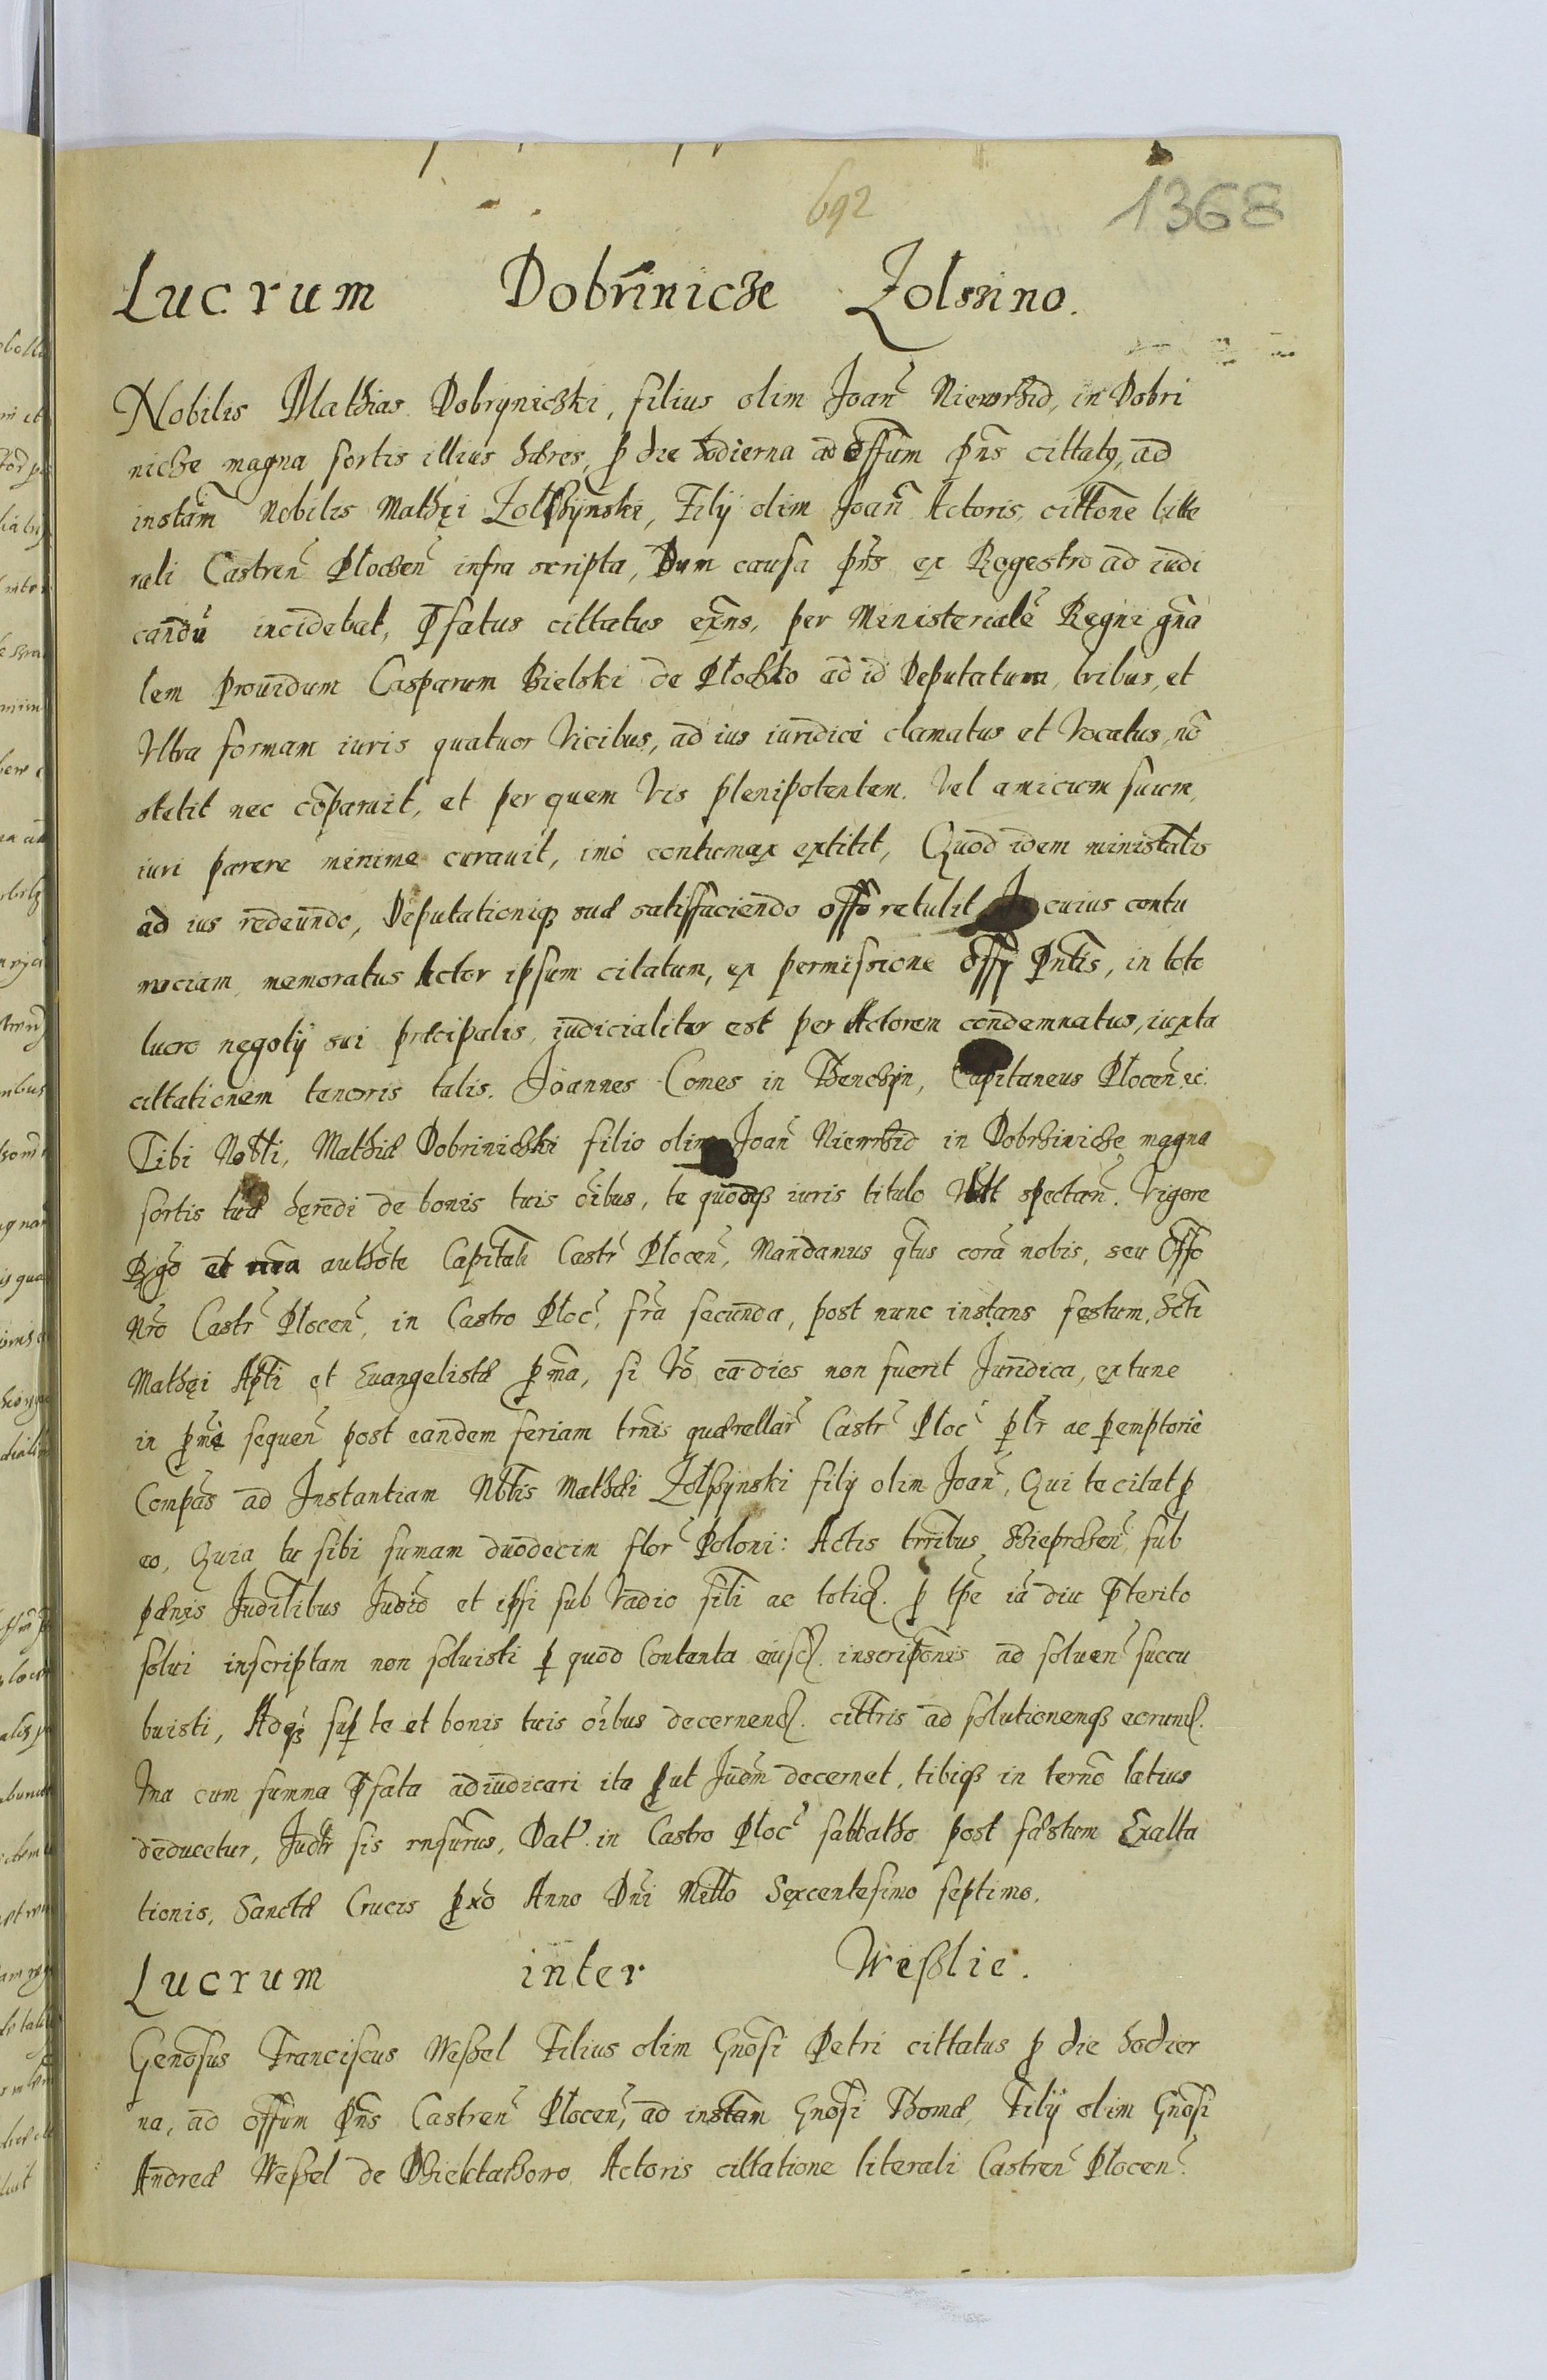 692
1368
Lucrum Dobrinicze Zolszino.
Nobilis Mathias Dobryniczki, filius olim Joan̄ Niewrhid, in Dobri
nicze magna sortis illius hæres, ꝑ die hodierna ad offum pn̄s cittatq, ad
instām Nobilis Mathęi Zolßÿnski, Filij olim Joan̄ Actoris, cittōne litte
rali Castren̄ Ploczen̄ infra scripta, Dum causa pn̄s ex Regestro ad iudi
candū incidebat, P̄fatus cittatus exn̄s, per Ministerialē Regni gn̄a
lem prouidum Casparum Bielski de Ploczko ad id Deputatum, tribus, et
Vltra formam iuris quatuor Vicibus, ad ius iuridicè clamatus et Vocatus, nō
stetit nec cōparuit, et per quem Vis plenipotentem. Vel amicum suum,
iuri parere minime curauit, imò contumax extitit, Quod idem ministālis
ad ius redeundo, Deputationiqꝫ suæ satisffaciendo offō retulit In cuius contu
maciam, memoratus Actor ipsum citatum, ex permissione offÿ Pn̄tis, in toto
lucro negotÿ sui prīcipalis, iudicialiter est per Actorem condemnatus, iuxta
cittationem tenoris talis. Joannes Comes in Thenchÿn, Capitaneus Plocen̄ ꝛc.
Tibi Nobli, Mathiæ Dobriniczki filio olim Joan̄ Niewrhid in Dobrhinichę magna
sortis tuæ hęredi de bonis tuis ōibus, te quōdqꝫ iuris titulo spectan̄. Vigore
Rg̃o et authōte Capitāli Castr̄ Plocen̄, Mandamus q̄tus corā nobis, seu Offo
Nr̄o Castr̄ Plocen̄, in Castro Ploc̄, fr̄a secunda, post nunc instans festum, Scti
Mathęi Apti et Euangelistæ ꝓma, si Vō ea dies non fuerit Juridica, ex tunc
in ꝓmi sequen̄ post eandem feriam trn̄is quærellar̄ Castr̄ Ploc̄ ꝑlr̄ ac ꝑemptoriè
Compās ad Instantiam Nbl̄is Mathæi Zolßynski filij olim Joan̄, Qui te citat ꝓ
eo, Quia tu sibi sumam duodecim flor̄ Poloni: Actis trr̄ibus Bieprhsen̄, sub
pænis Juditibus Judiō et ipsi sub Vadio sibi ac totiđ. ꝓ tp̄e iā diu p̄terito
solui inscriptam non soluisti ꝓ quod Contenta eiusđ. inscripōnis ad soluen̄ succu
buisti, Adqꝫ suꝑ te et bonis tuis ōibus decernenđ. cittris ad solutionemqꝫ eorunđ.
Vna cum summa p̄fata adiudicari ita ꝓut Judm̄ decernet, tibiqꝫ in termō latius
deducetur, Judr̄ sis rn̄surus, Dat̄ in Castro Ploc̄ sabbatho post fæstum Exalta
tionis, Sanctæ Crucis ꝓxō Anno Dn̄i Mitto Sexcentesimo septimo.
Lucrum inter Weßlie.
Genōsus Franciscus Weßel Filius olim Gnōsi Petri cittatus ꝓ die hodier
na, ad offum Pn̄s Castren̄ Plocen̄, ad instām Gnōsi Thomæ, Filÿ olim Gnōsi
Andreæ Weßel de Actoris cittatione literali Castren̄ Plocen̄.